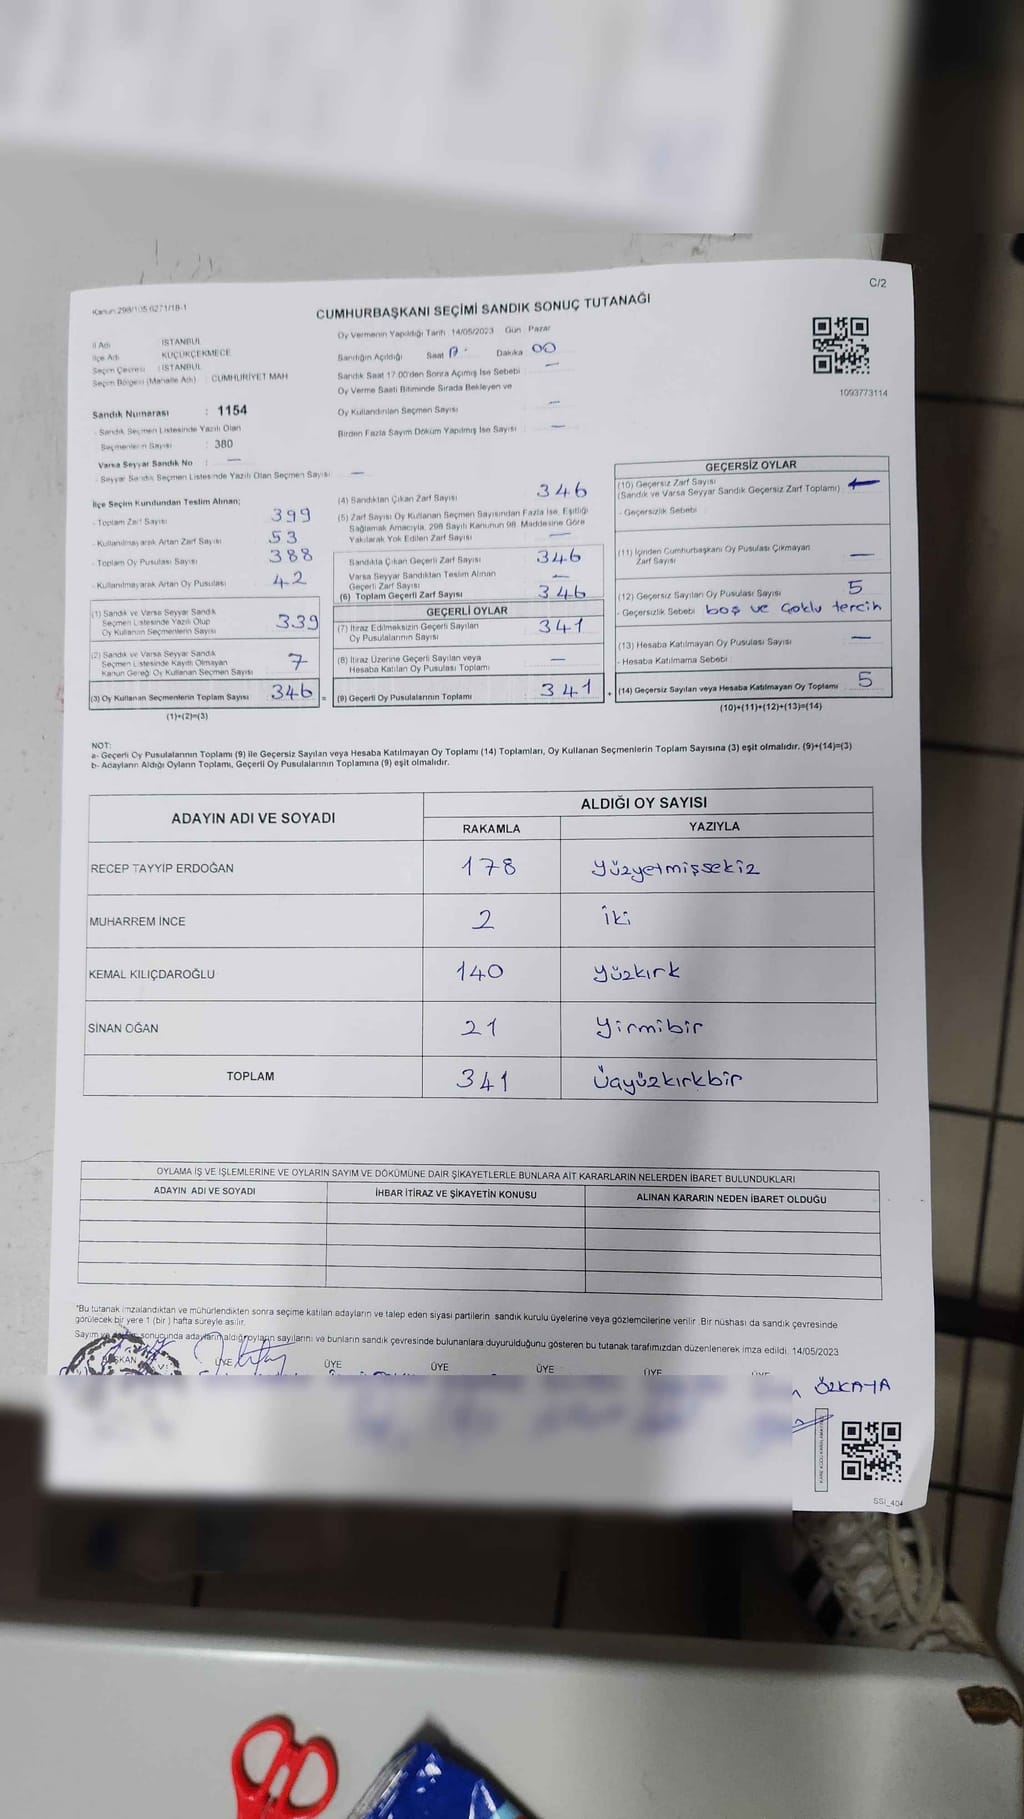 C/2
Kanun:298/105,6271/18-1
CUMHURBAŞKANI SEÇİMİ SANDIK SONUÇ TUTANAĞI
İl Adı : İSTANBUL
İlçe Adı : KÜÇÜKÇEKMECE
Seçim Çevresi : İSTANBUL
Seçim Bölgesi (Mahalle Adı) : CUMHURİYET MAH
Sandık Numarası : 1154
- Sandık Seçmen Listesinde Yazılı Olan
Seçmenlerin Sayısı : 380
Varsa Seyyar Sandık No : —
- Seyyar Sandık Seçmen Listesinde Yazılı Olan Seçmen Sayısı —
Oy Vermenin Yapıldığı Tarih : 14/05/2023 Gün : Pazar
Sandığın Açıldığı Saat : Dakika : 00
Sandık Saat 17.00'den Sonra Açılmış İse Sebebi —
Oy Verme Saati Bitiminde Sırada Bekleyen ve
Oy Kullandırılan Seçmen Sayısı —
Birden Fazla Sayım Döküm Yapılmış İse Sayısı —
1093773114
İlçe Seçim Kurulundan Teslim Alınan;
- Toplam Zarf Sayısı 399
- Kullanılmayarak Artan Zarf Sayısı 53
- Toplam Oy Pusulası Sayısı 388
- Kullanılmayarak Artan Oy Pusulası 42
(1) Sandık ve Varsa Seyyar Sandık
Seçmen Listesinde Yazılı Olup
Oy Kullanan Seçmenlerin Sayısı 339
(2) Sandık ve Varsa Seyyar Sandık
Seçmen Listesinde Kayıtlı Olmayan
Kanun Gereği Oy Kullanan Seçmen Sayısı 7
(3) Oy Kullanan Seçmenlerin Toplam Sayısı 346 =
(1)+(2)=(3)
(4) Sandıktan Çıkan Zarf Sayısı 346
(5) Zarf Sayısı Oy Kullanan Seçmen Sayısından Fazla İse, Eşitliği
Sağlamak Amacıyla, 298 Sayılı Kanunun 98. Maddesine Göre
Yakılarak Yok Edilen Zarf Sayısı —
Sandıkta Çıkan Geçerli Zarf Sayısı 346
Varsa Seyyar Sandıktan Teslim Alınan
Geçerli Zarf Sayısı —
(6) Toplam Geçerli Zarf Sayısı 346
GEÇERLİ OYLAR
(7) İtiraz Edilmeksizin Geçerli Sayılan
Oy Pusulalarının Sayısı 341
(8) İtiraz Üzerine Geçerli Sayılan veya
Hesaba Katılan Oy Pusulası Toplamı —
(9) Geçerli Oy Pusulalarının Toplamı 341 +
GEÇERSİZ OYLAR
(10) Geçersiz Zarf Sayısı
(Sandık ve Varsa Seyyar Sandık Geçersiz Zarf Toplamı) —
- Geçersizlik Sebebi :
(11) İçinden Cumhurbaşkanı Oy Pusulası Çıkmayan
Zarf Sayısı —
(12) Geçersiz Sayılan Oy Pusulası Sayısı 5
- Geçersizlik Sebebi : boş ve çoklu tercih
(13) Hesaba Katılmayan Oy Pusulası Sayısı —
- Hesaba Katılmama Sebebi :
(14) Geçersiz Sayılan veya Hesaba Katılmayan Oy Toplamı 5
(10)+(11)+(12)+(13)=(14)
NOT:
a- Geçerli Oy Pusulalarının Toplamı (9) ile Geçersiz Sayılan veya Hesaba Katılmayan Oy Toplamı (14) Toplamları, Oy Kullanan Seçmenlerin Toplam Sayısına (3) eşit olmalıdır. (9)+(14)=(3)
b- Adayların Aldığı Oyların Toplamı, Geçerli Oy Pusulalarının Toplamına (9) eşit olmalıdır.
ADAYIN ADI VE SOYADI ALDIĞI OY SAYISI
RAKAMLA YAZIYLA
RECEP TAYYİP ERDOĞAN 178 yüzyetmişsekiz
MUHARREM İNCE 2 iki
KEMAL KILIÇDAROĞLU 140 yüzkırk
SİNAN OĞAN 21 yirmibir
TOPLAM 341 üçyüzkırkbir
OYLAMA İŞ VE İŞLEMLERİNE VE OYLARIN SAYIM VE DÖKÜMÜNE DAİR ŞİKAYETLERLE BUNLARA AİT KARARLARIN NELERDEN İBARET BULUNDUKLARI
ADAYIN ADI VE SOYADI İHBAR İTİRAZ VE ŞİKAYETİN KONUSU ALINAN KARARIN NEDEN İBARET OLDUĞU
"Bu tutanak imzalandıktan ve mühürlendikten sonra seçime katılan adayların ve talep eden siyasi partilerin sandık kurulu üyelerine veya gözlemcilerine verilir .Bir nüshası da sandık çevresinde
görülecek bir yere 1 (bir ) hafta süreyle asılır.
Sayım ve sonucunda adayların aldığı oyların sayılarını ve bunların sandık çevresinde bulunanlara duyurulduğunu gösteren bu tutanak tarafımızdan düzenlenerek imza edildi. 14/05/2023
BAŞKAN ÜYE ÜYE ÜYE ÜYE ÜYE ÜYE
ÖZKAYA
SSI_404